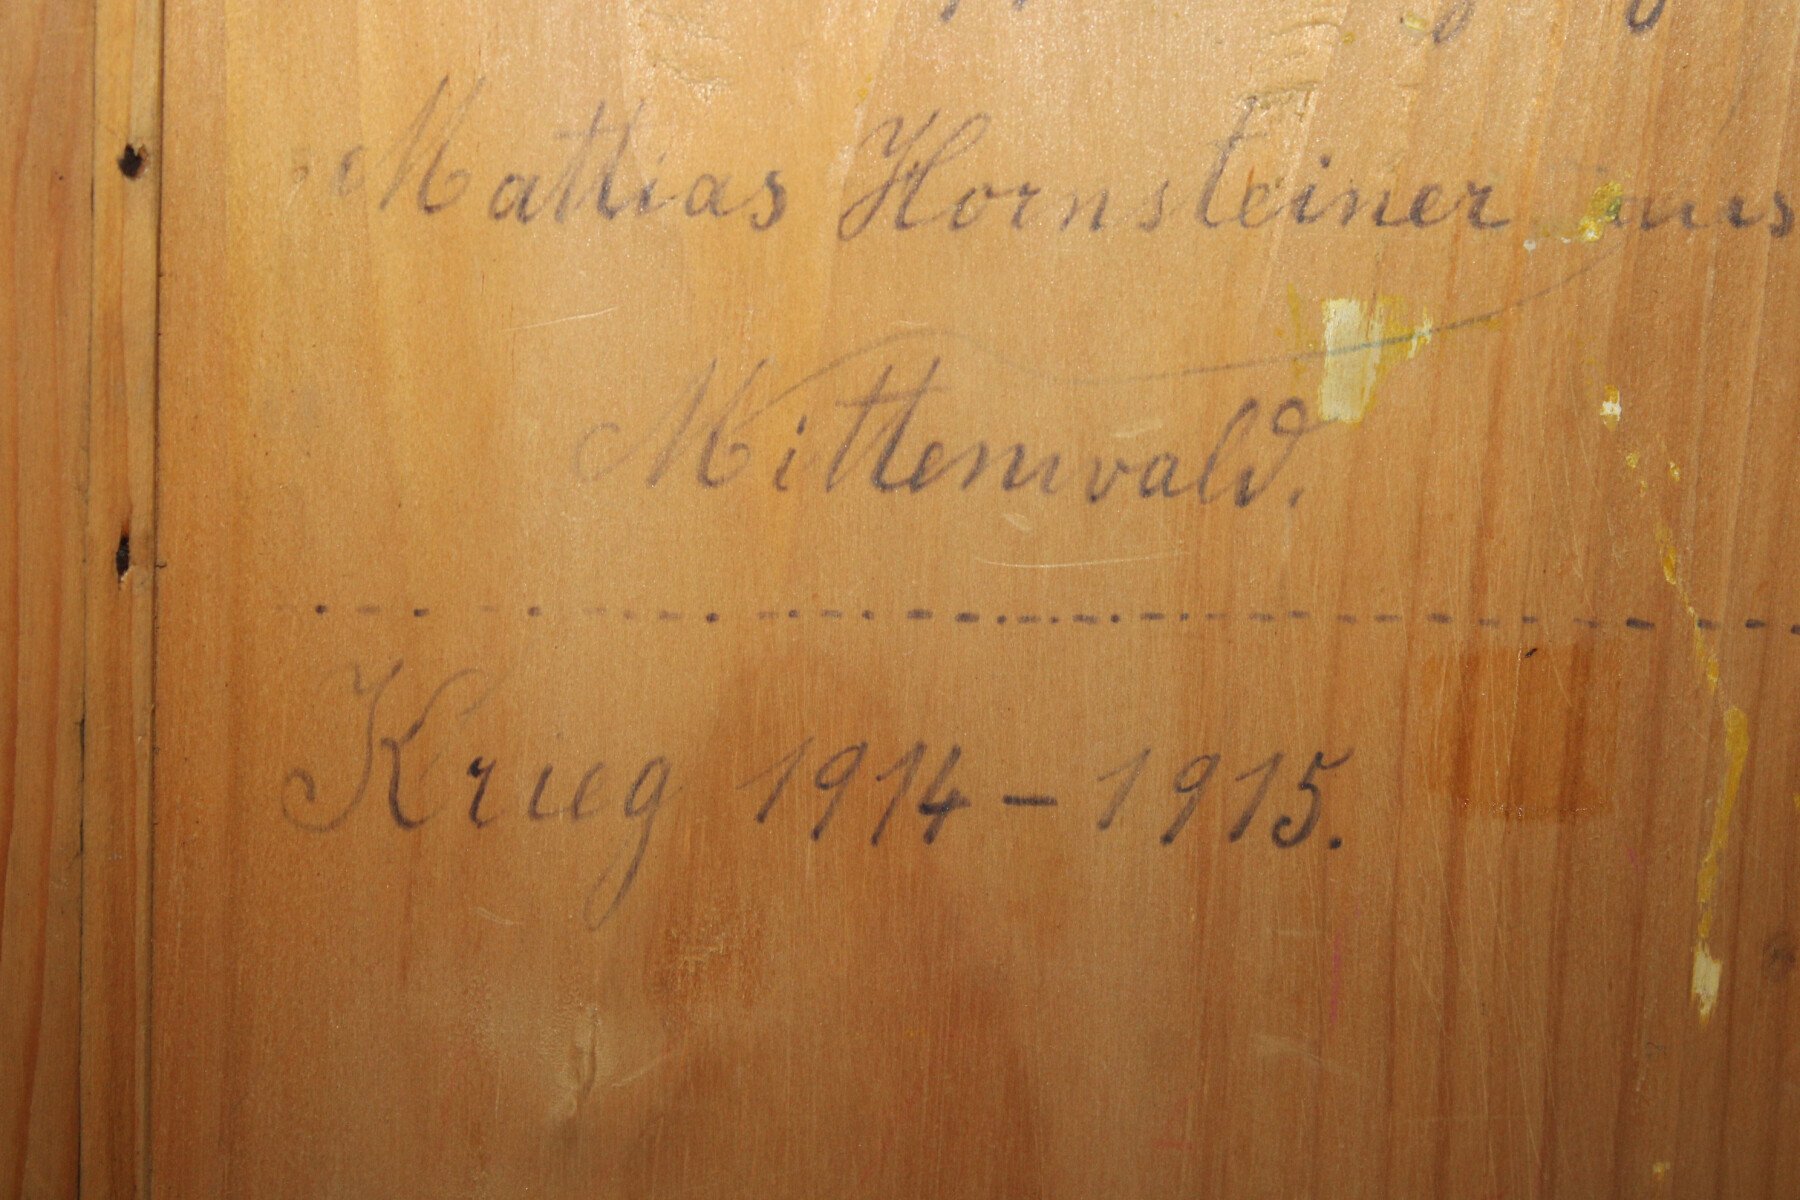 Mathias Hornsteiner aus
Mittenwald.
Krieg 1914 - 1915.